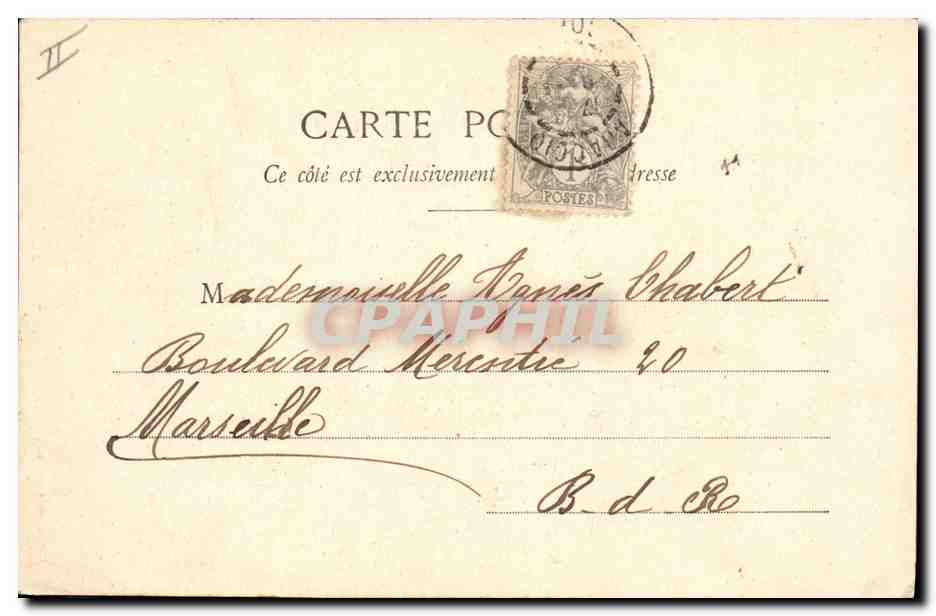 II
CARTE PO
Ce côté est exclusivement dresse
1
POSTES
AJACCIO
Mademoiselle Agnès Chabert
CPAPHIL
Boulevard Merentié 20
Marseille
B. d. R